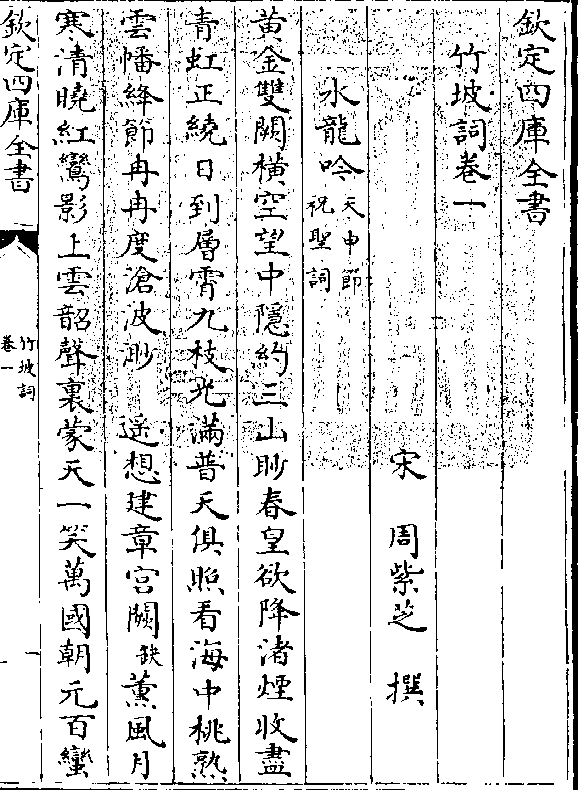 欽定四庫全書
竹坡詞卷一
宋 周紫芝 撰
水龍吟天申節祝聖詞
黄金雙闕横空望中隱約三山眇春皇欲降渚煙收盡
青虹正繞日到層霄九枝光滿普天俱照看海中桃熟
雲幡絳節冉冉度滄波眇 遥想建章宫闕缺薰風月
寒清曉紅鸞影上雲韶聲裏蒙天一笑萬國朝元百蠻
欽定四庫全書
竹坡詞
卷一